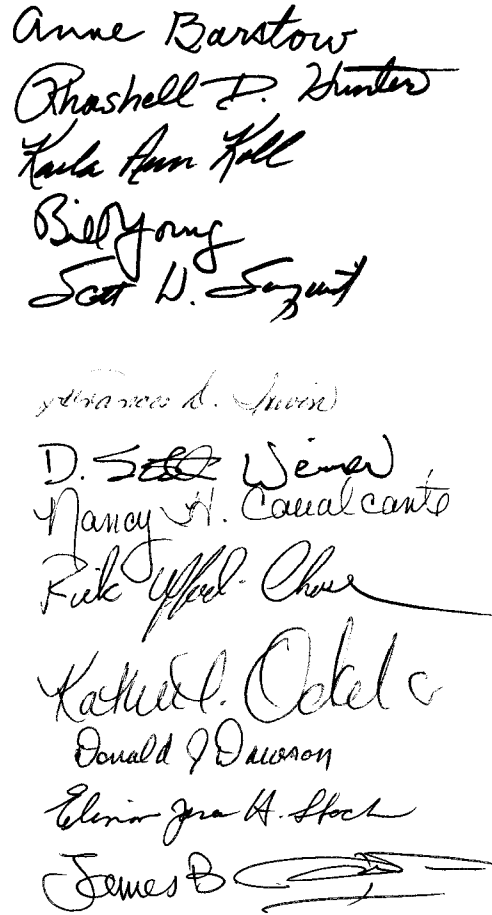 Anne Barstow
Rhashell D. Hunter
Karla Ann Koll
Bill Young
Scott D. Sargent
Frances D. Irwin
D. Scott Weimer
Nancy H. Cavalcante
Rick Ufford-Chase
Donald J Dawson
Jean H. Stock
James B